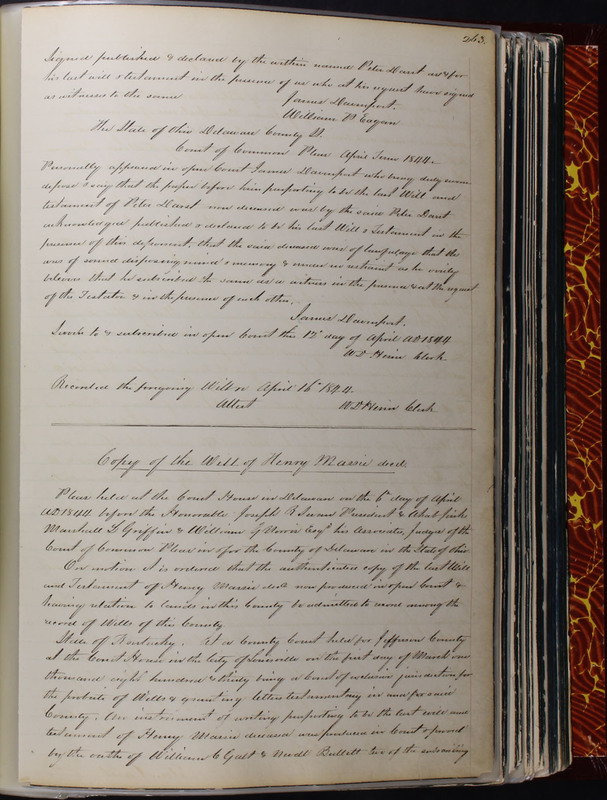 243.
Signed published & declared by the within named Peter Darst as & for
his last will & testament in the presence of us who at his request have signed
as witnesses to the same
James Davenport.
William P Eagan
The State of Ohio Delaware County Ss
Court of Common Pleas April Term 1844
Personally appeared in open Court James Davenport who being duly sworn
depose & say that the paper before him purporting to be the last Will and
testament of Peter Darst now deceased was by the said Peter Darst
acknowledged published & declared to be his last Will & Testament in the
presence of this deponent, that the said deceased was of lawful age that he
was of sound disposing mind & memory & under no restraint as he verily
believes that he subscribed the same as a witness in the presence & at the request
of the Testator & in the presence of each other.
James Davenport.
Sworn to & subscribed in open Court this 12" day of April AD 1844
WD Heim Clerk
Recorded the foregoing Will on April 16" 1844.
Attest WD Heim Clerk
Copy of the Will of Henry Massie decd.
Pleas held at the Court House in Delaware on the 6" day of April
AD 1844 before the Honorable Joseph R Swan President &
Marshall L Griffin & William G Norris Esqs his Associates, judges of the
Court of Common Pleas in & for the County of Delaware in the State of Ohio
On motion it is ordered that the authenticated copy of the last Will
and Testament of Henry Massie decd now produced in open Court &
having relation to lands in this County be admitted to record among the
record of Wills of this County
State of Kentucky. At a County Court held for Jefferson County
at the Court House in the City of Louisville on the first day of March one
thousand eight hundred & thirty being a Court of jurisdiction for
the probate of Wills & granting letters testamentary in and for said
County. An instrument of writing purporting to be the last will and
testament of Henry Massie deceased was produced in Court & proved
by the oaths of William C Galt & Neville Bullitt two of the subscribing